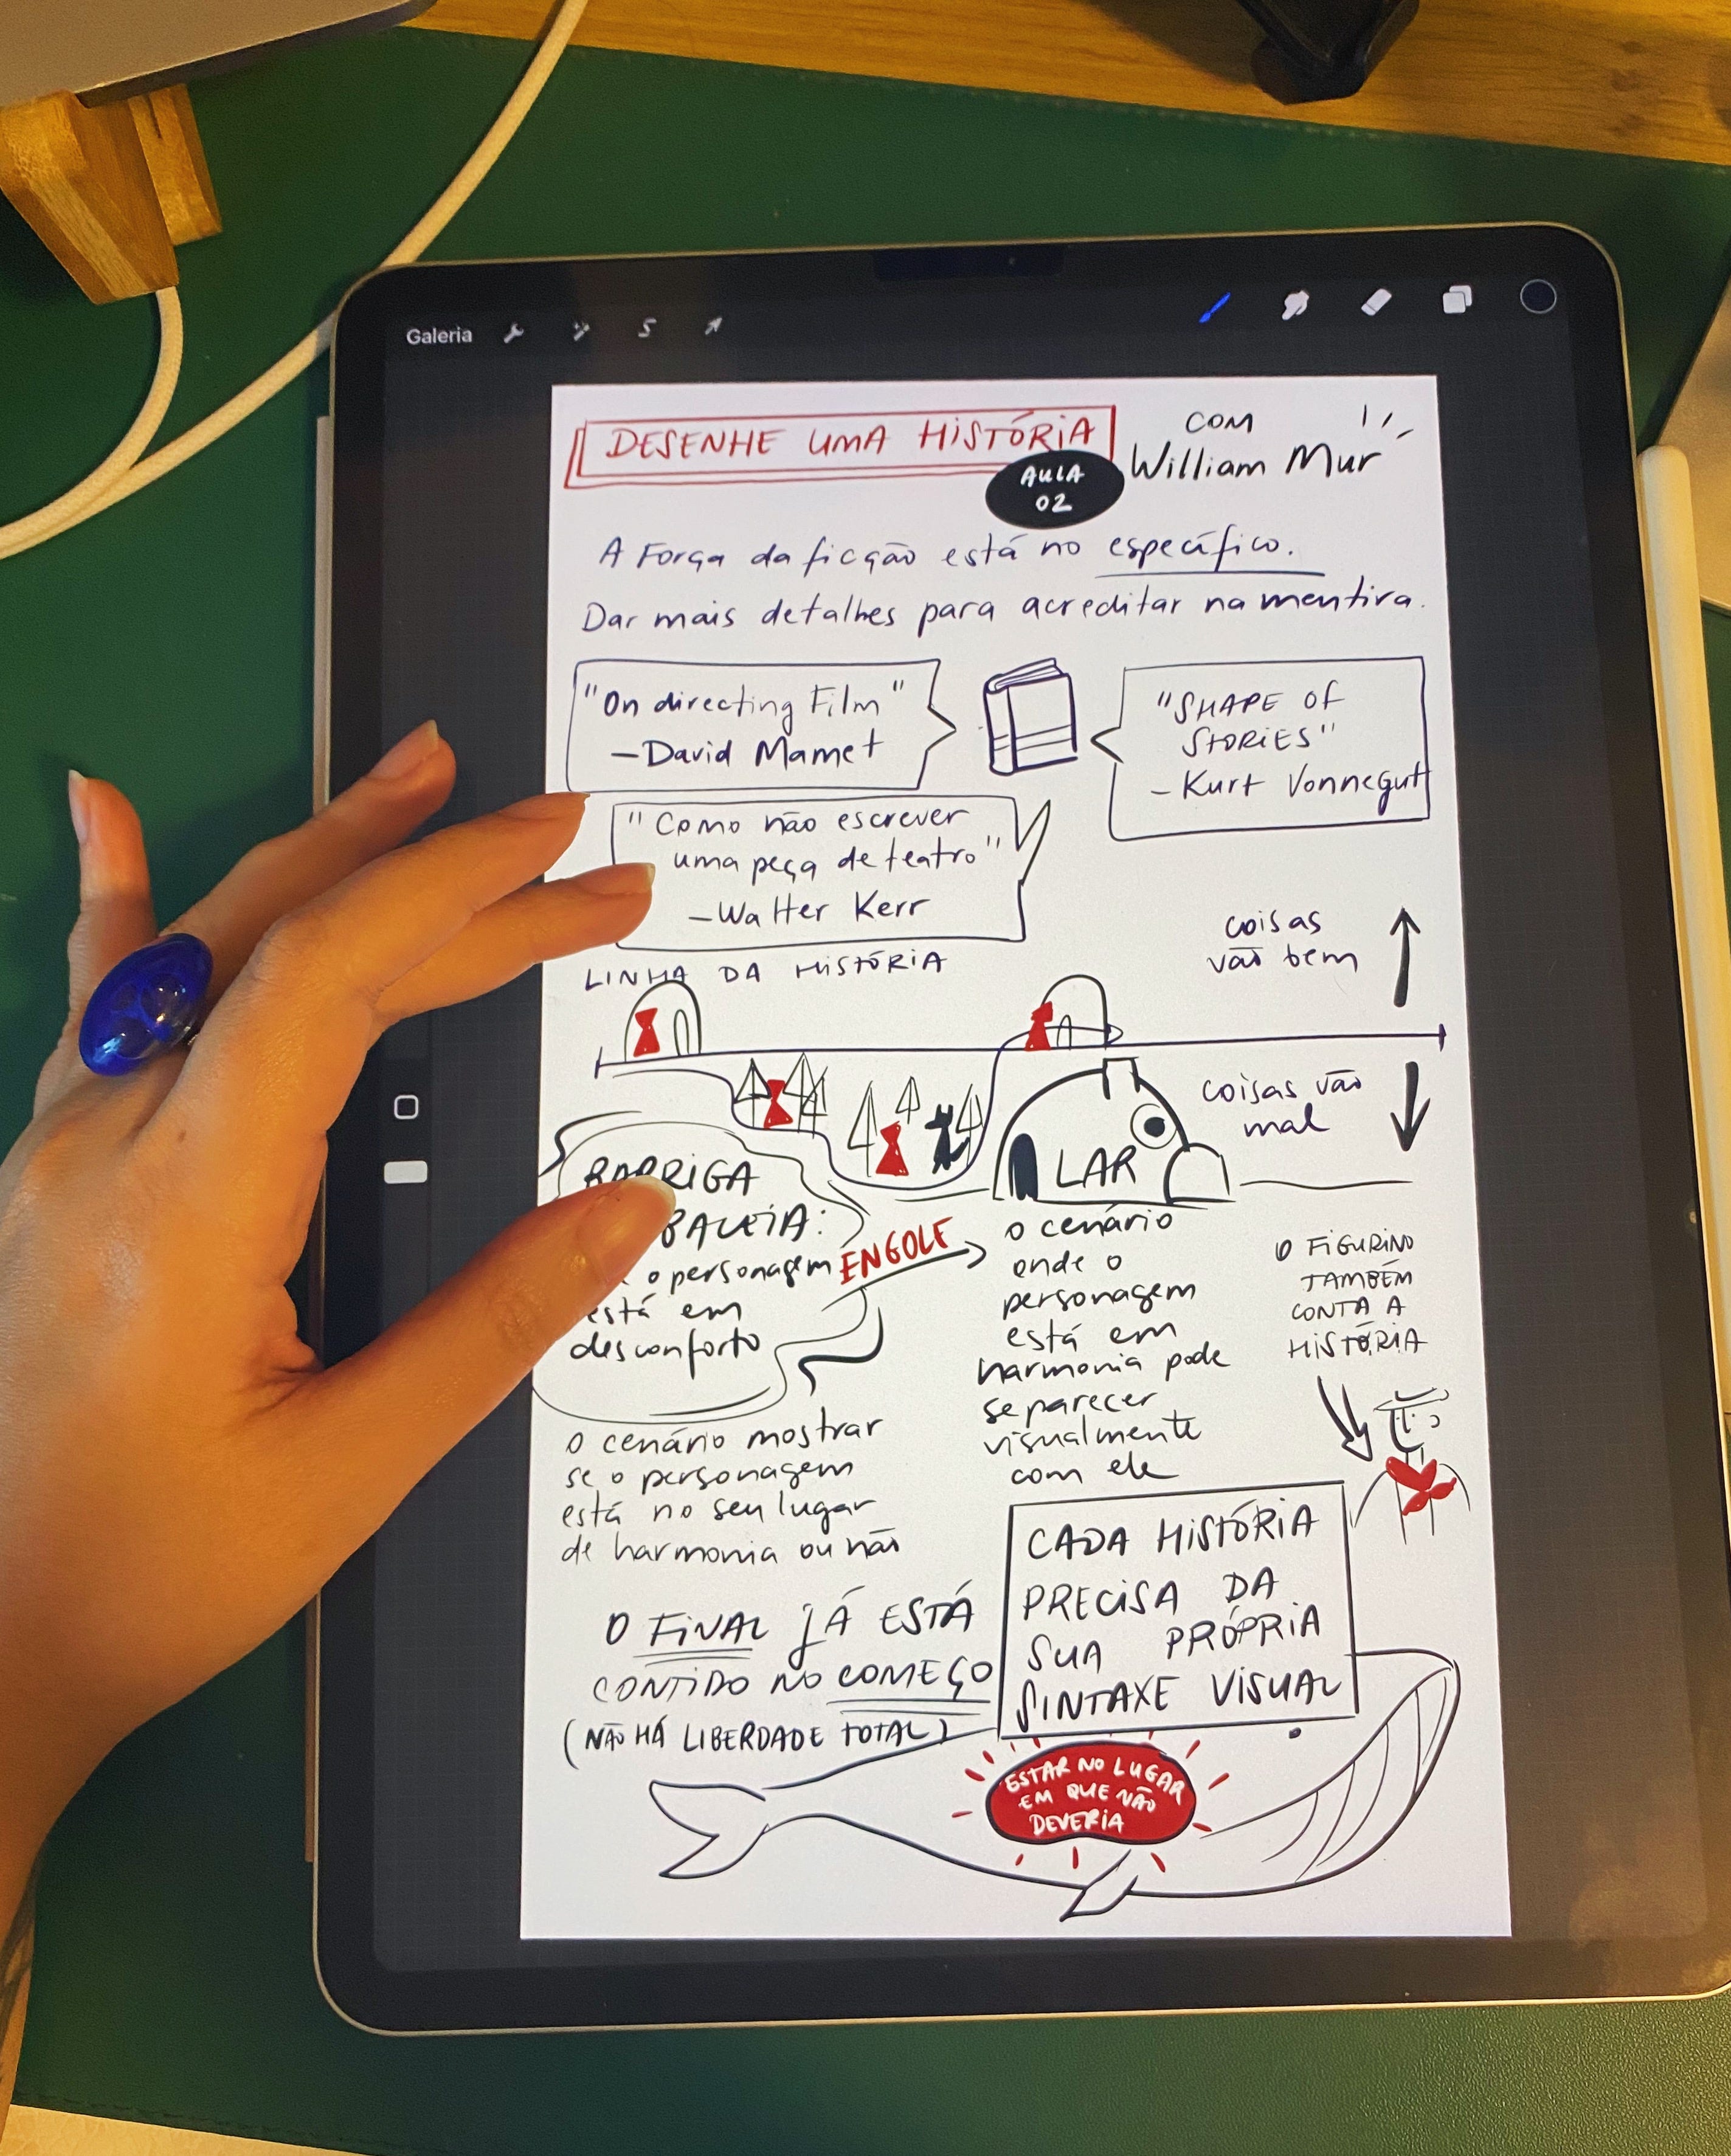 Galeria
DESENHE UMA HISTÓRIA
COM
William Mur
AULA
02
A Força da ficção está no específico.
Dar mais detalhes para acreditar na mentira.
"On directing Film"
—David Mamet
"SHAPE OF
STORIES"
— Kurt Vonnegut
"Como não escrever
uma peça de teatro"
—Walter Kerr
LINHA DA HISTÓRIA
coisas
vão bem
coisas vão
mal
BARRIGA
BALEIA:
o personagem
está em
desconforto
ENGOLE
LAR
o cenário
onde o
personagem
está em
harmonia pode
se parecer
visualmente
com ele
O FIGURINO
TAMBÉM
CONTA A
HISTÓRIA
o cenário mostrar
se o personagem
está no seu lugar
de harmonia ou não
CADA HISTÓRIA
PRECISA DA
SUA PRÓPRIA
SINTAXE VISUAL
O FINAL JÁ ESTÁ
CONTIDO NO COMEÇO
(NÃO HÁ LIBERDADE TOTAL)
ESTAR NO LUGAR
EM QUE NÃO
DEVERIA